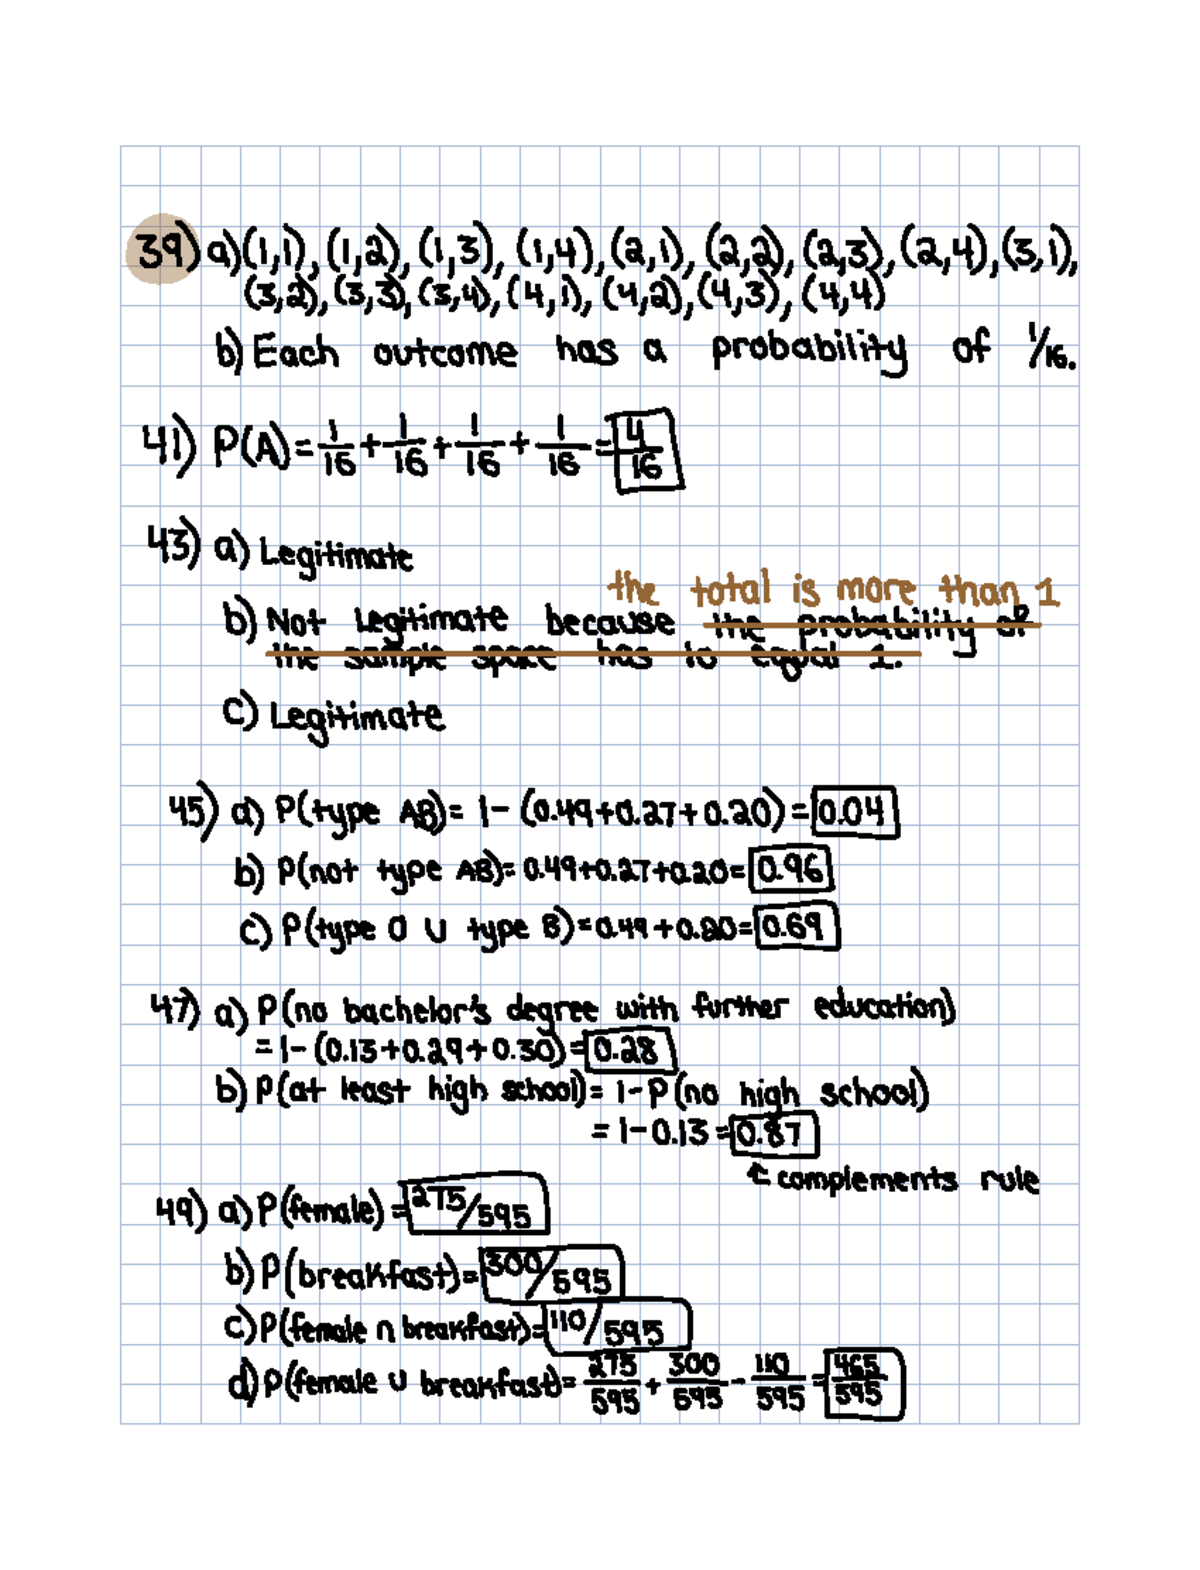 39) a) (1,1), (1,2), (1,3), (1,4), (2,1), (2,2), (2,3), (2,4), (3,1),
(3,2), (3,3), (3,4), (4,1), (4,2), (4,3), (4,4)
b) Each outcome has a probability of 1/16.
41) P(A) = 1/16 + 1/16 + 1/16 + 1/16 = 4/16
43) a) Legitimate
the total is more than 1
b) Not legitimate because the probability of
the sample space has to equal 1.
c) Legitimate
45) a) P(type AB) = 1 - (0.49+0.27+0.20) = 0.04
b) P(not type AB) = 0.49+0.27+0.20 = 0.96
c) P(type O ∪ type B) = 0.49+0.20 = 0.69
47) a) P(no bachelor's degree with further education)
= 1 - (0.13+0.29+0.30) = 0.28
b) P(at least high school) = 1 - P(no high school)
= 1 - 0.13 = 0.87
↑ complements rule
49) a) P(female) = 275/595
b) P(breakfast) = 300/595
c) P(female ∩ breakfast) = 110/595
d) P(female ∪ breakfast) = 275/595 + 300/595 - 110/595 = 465/595